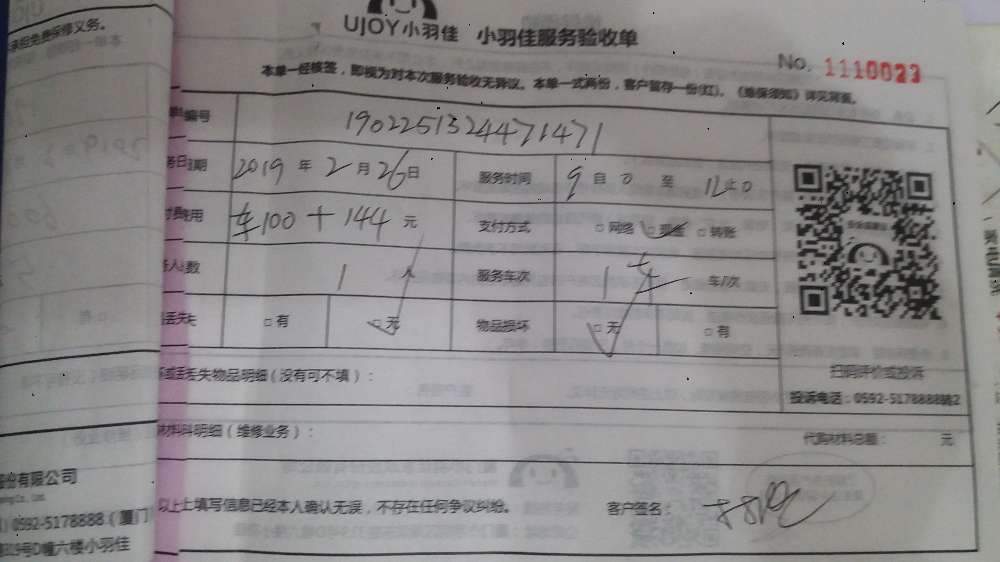 承担免费保修义务。
UJOY小羽佳 小羽佳服务验收单
No. 1110023
本单一经核签，即视为对本次服务验收无异议。本单一式两份，客户暂存一份(红)。《维保须知》详见背面。
编号 190225132447147​1
日期 2019 年 2 月 26 日 服务时间 9 自 0 至 12 止 0
费用 ¥100 + 144 元 支付方式 □网络 □现金 □转账
人数 1 人 服务车次 1 车/次
丢失 □有 □无 物品损坏 □无 □有
或丢失物品明细（没有可不填）：
扫码评价或投诉
投诉电话：0592-5178888转2
材料明细（维修业务）：
代购材料总额： 元
以上填写信息已经本人确认无误，不存在任何争议纠纷。
客户签名：
份有限公司
0592-5178888（厦门
319号D幢六楼小羽佳